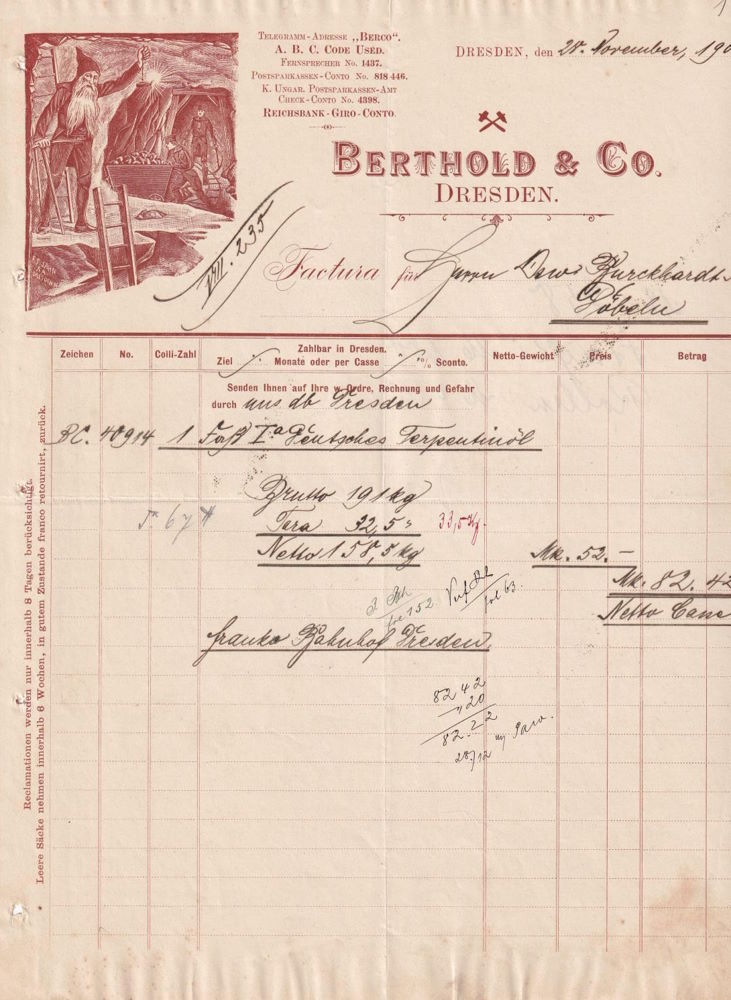 Telegramm-Adresse „Berco“.
A. B. C. Code Used.
Fernsprecher No. 1437.
Postsparkassen-Conto No. 818446.
K. Ungar. Postsparkassen-Amt
Check-Conto No. 4398.
Reichsbank-Giro-Conto.
Dresden, den 28. November, 190
Berthold & Co.
Dresden.
VIII. 235
Factura für Herrn Burckhardt
Döbeln
Zeichen No. Colli-Zahl Ziel Zahlbar in Dresden. Monate oder per Casse % Sconto. Netto-Gewicht Preis Betrag
Senden Ihnen auf Ihre w. Ordre, Rechnung und Gefahr
durch uns ab Dresden
BC. 40914 1 Faß Ia Deutsches Terpentinöl
Brutto 191 kg
Tara 32,5 " 33,5 Kg.
Netto 158,5 kg Mk. 52.—
Mk. 82.42
Netto Casse
fol 152 fol 63.
franko Bahnhof Dresden
82 42
" 20
82.22
28./12
Reclamationen werden nur innerhalb 8 Tagen berücksichtigt.
Leere Säcke nehmen innerhalb 6 Wochen, in gutem Zustande franco retournirt, zurück.